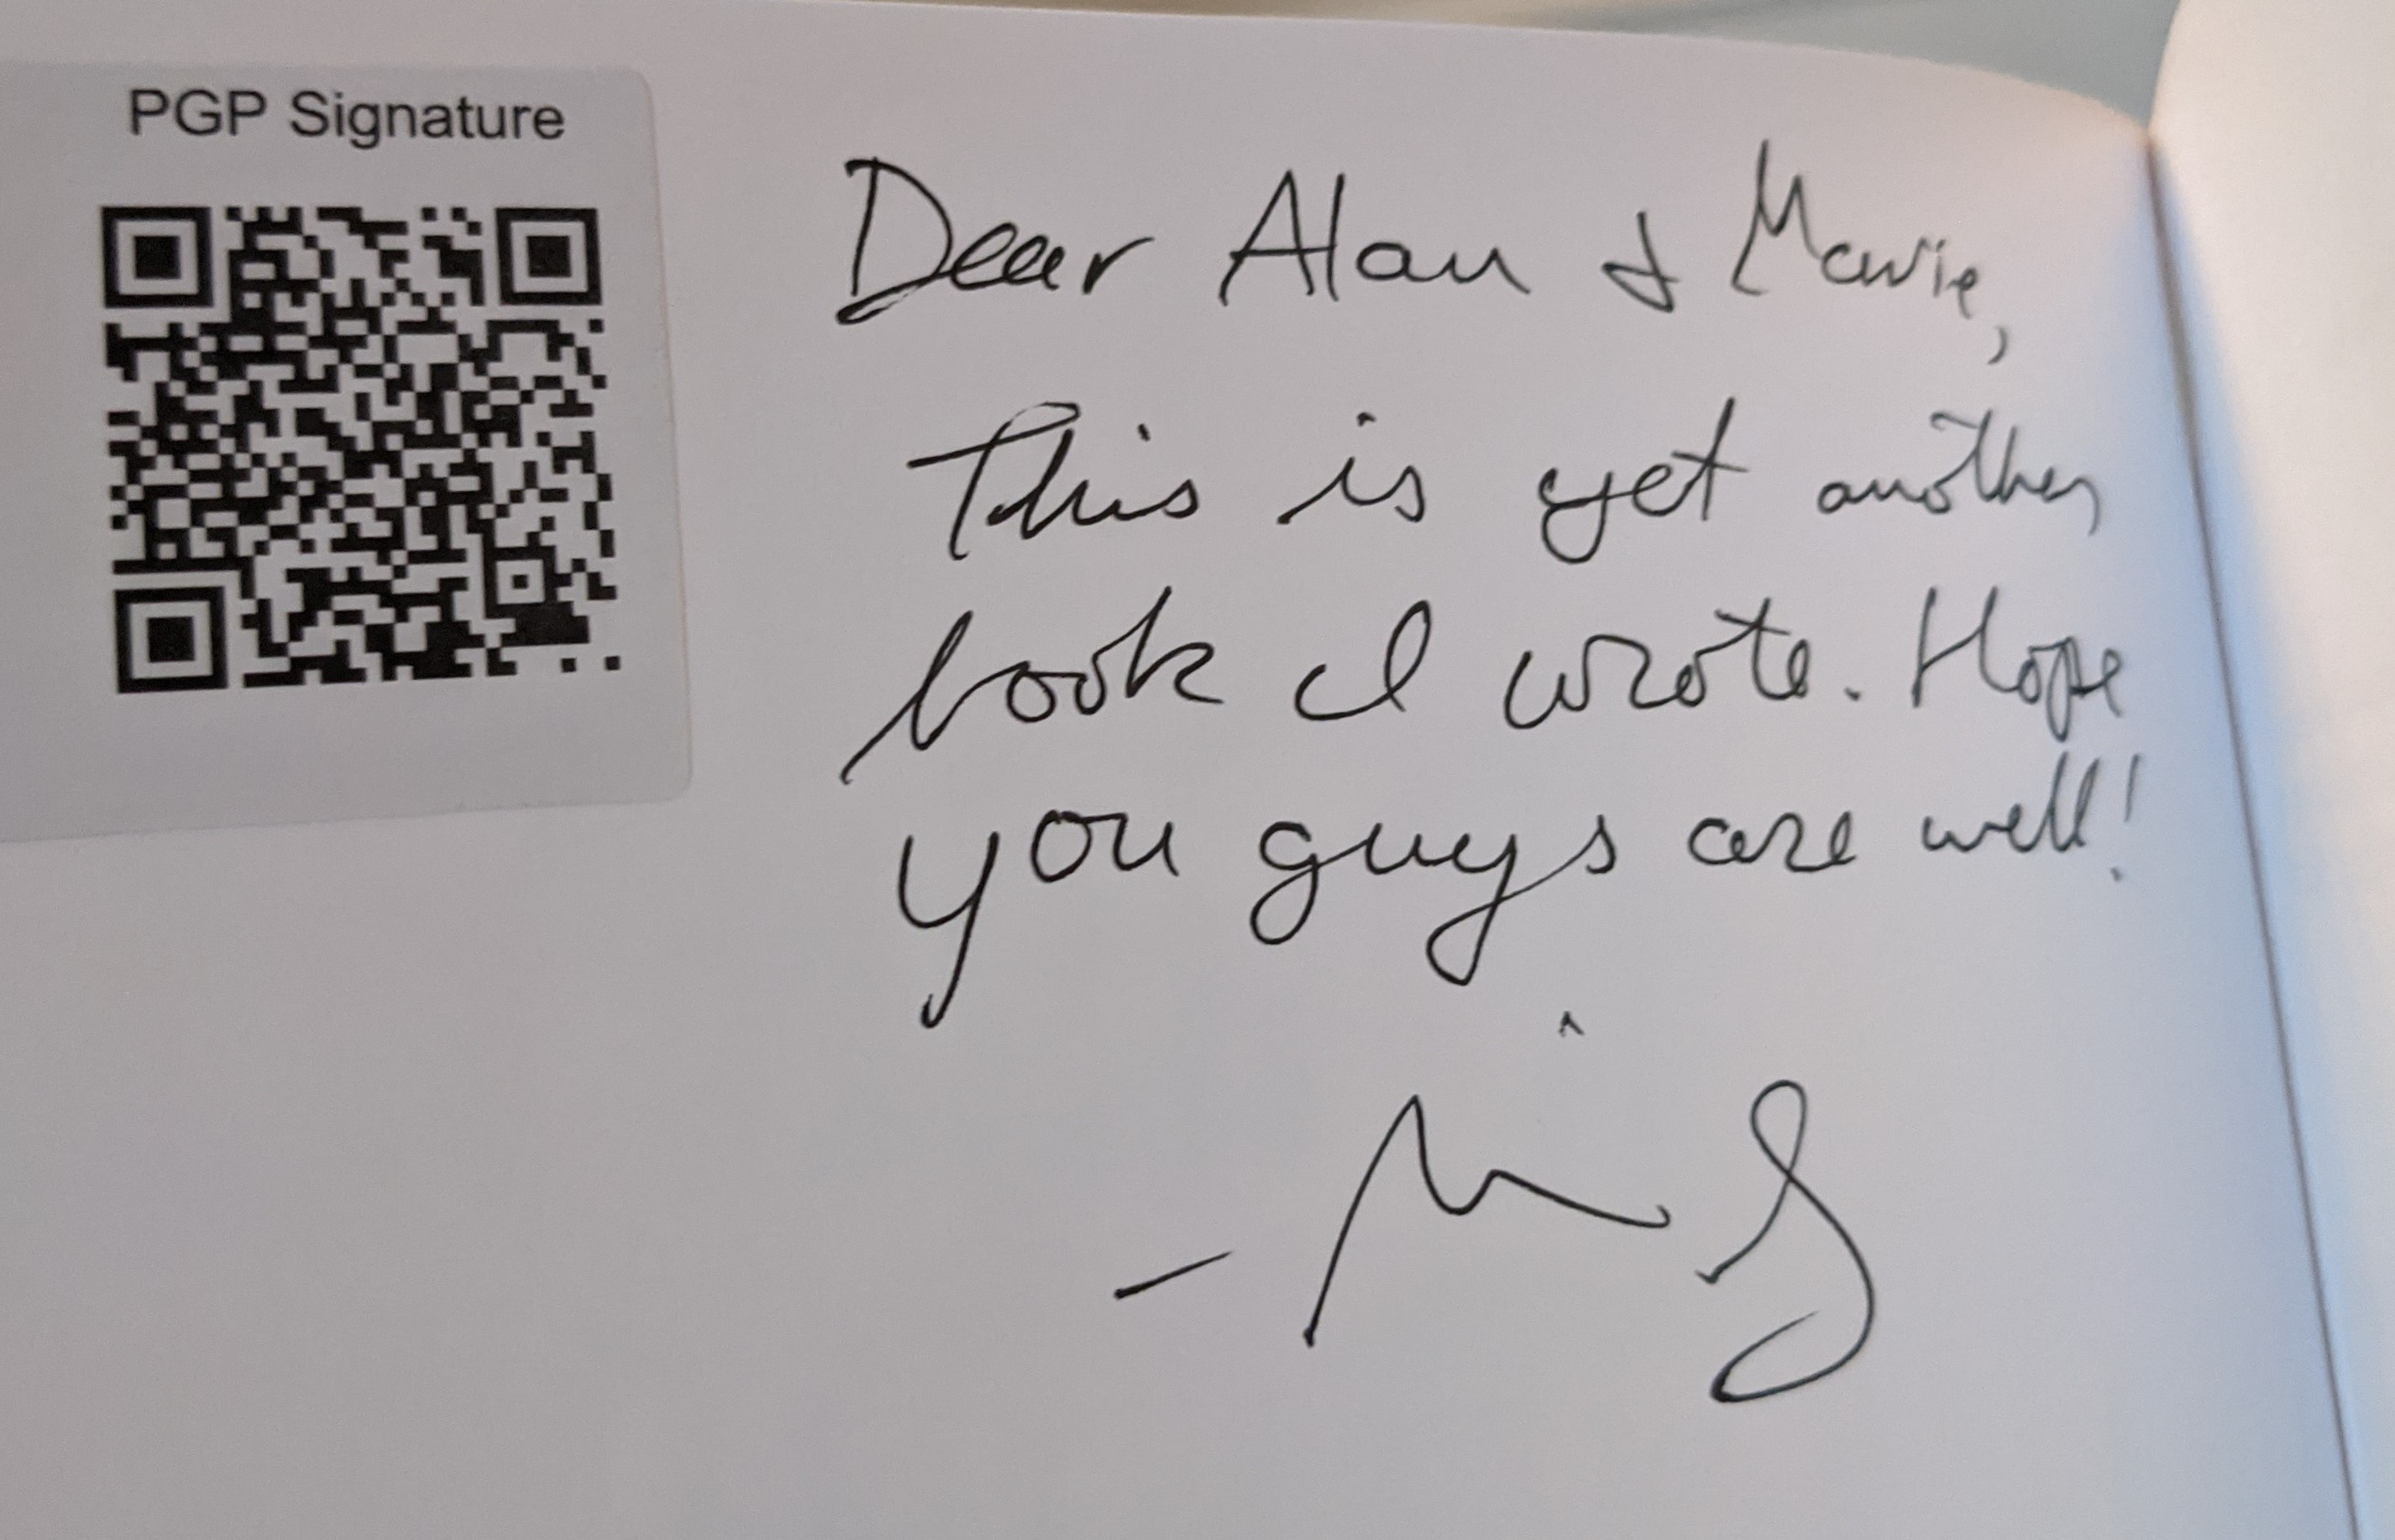 PGP Signature
Dear Alan & Marie,
This is yet another
book I wrote. Hope
you guys are well!